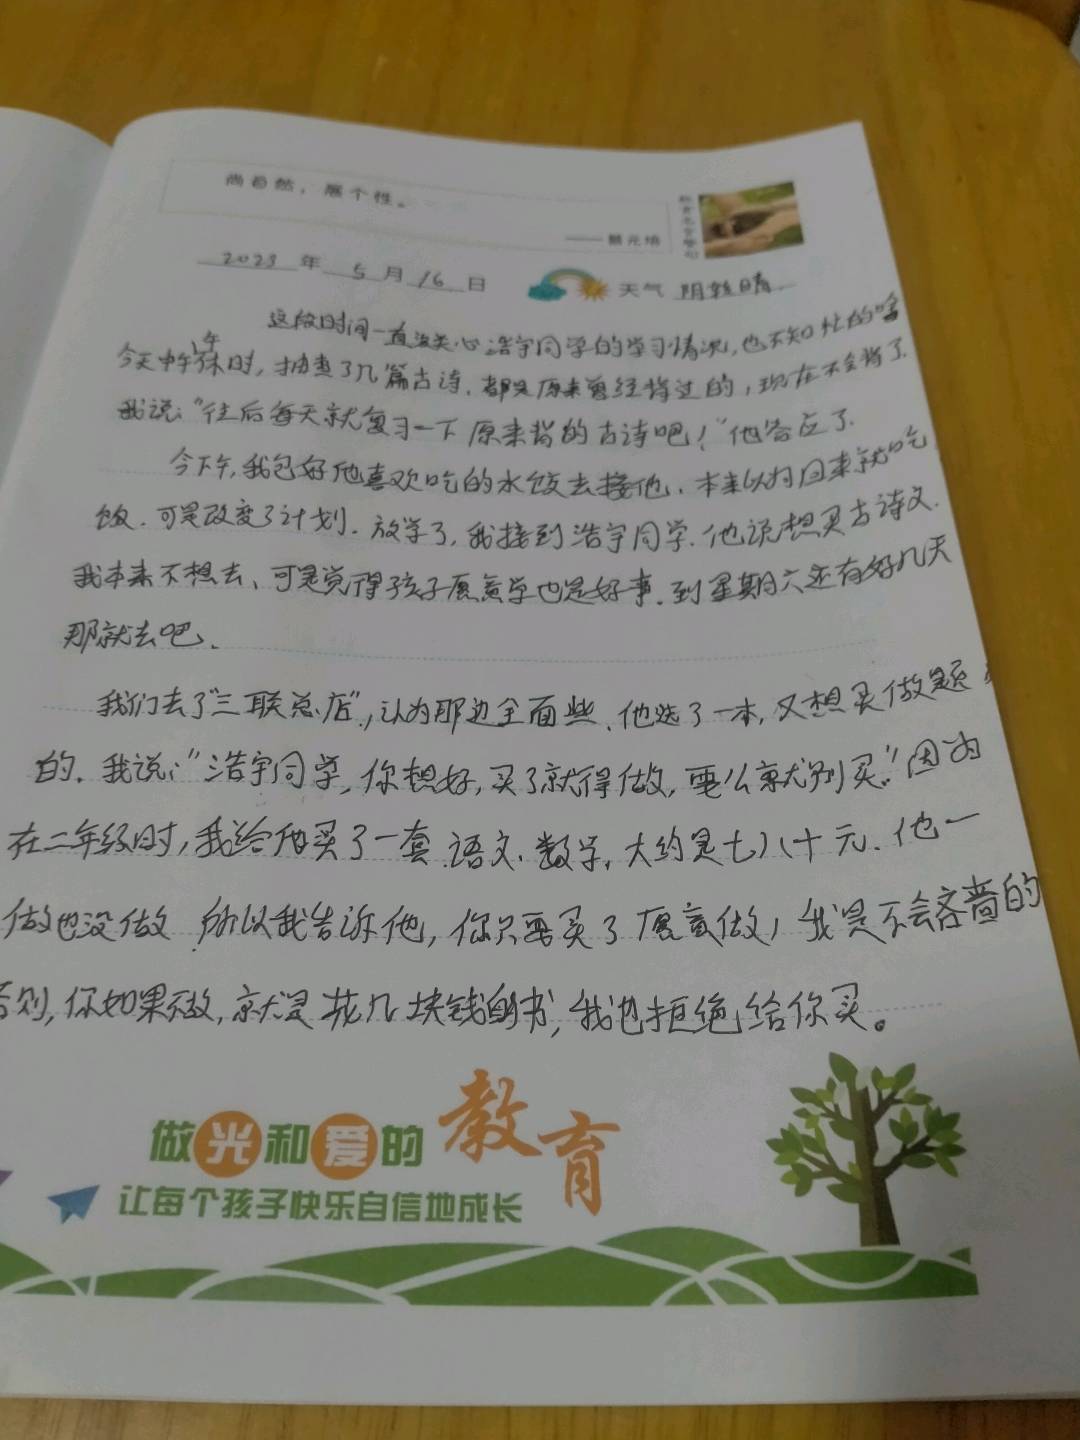 尚自然，展个性。
——蔡元培
教育名言警句
2023 年 5 月 16 日 天气 阴转晴
这段时间一直没关心浩宇同学的学习情况,也不知忙的啥
今天中午午休时,抽查了几篇古诗.都是原来曾经背过的,现在不会背了.
我说:"往后每天就复习一下原来背的古诗吧!"他答应了.
今下午,我包好他喜欢吃的水饺去接他.本来以为回来就吃
饭.可是改变了计划.放学了,我接到浩宇同学.他说想买古诗文.
我本来不想去、可是觉得孩子愿意学也是好事.到星期六还有好几天
那就去吧.
我们去了"三联总店",认为那边全面些.他选了一本,又想买做题
的.我说:"浩宇同学,你想好,买了就得做,要么就别买."因为
在二年级时,我给他买了一套.语文.数学,大约是七八十元.他一
做也没做.所以我告诉他,你只要买了愿意做,我是不会吝啬的
否则,你如果不做,就是花几块钱的书,我也拒绝给你买。
做光和爱的教育
让每个孩子快乐自信地成长